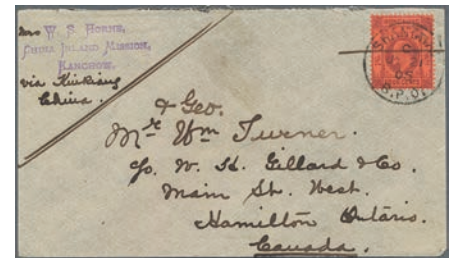 Mrs W. S. Horne,
China Inland Mission,
Kanchow.
via Kiukiang
China.
& Geo.
Mr Wm Turner.
c/o. W. H. Gillard & Co.
Main St. West.
Hamilton Ontario.
Canada.
B.P.O.